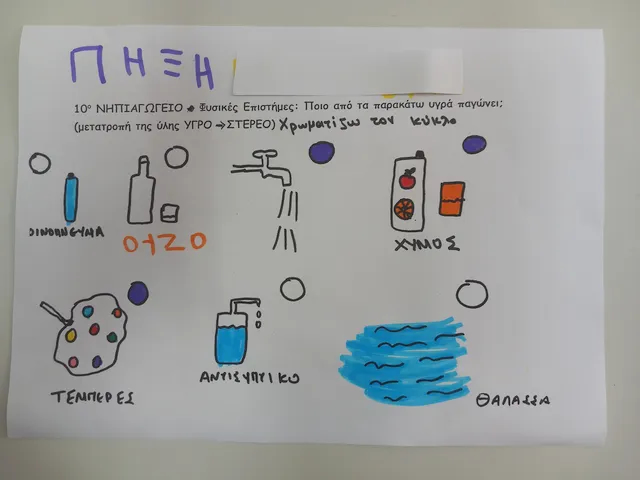 ΠΗΞΗ
10ο ΝΗΠΙΑΓΩΓΕΙΟ • Φυσικές Επιστήμες: Ποιο από τα παρακάτω υγρά παγώνει;
(μετατροπή της ύλης ΥΓΡΟ → ΣΤΕΡΕΟ) Χρωματίζω τον κύκλο
ΟΙΝΟΠΝΕΥΜΑ
ΟΥΖΟ
ΧΥΜΟΣ
ΤΕΜΠΕΡΕΣ
ΑΝΤΙΣΥΠΤΙΚΟ
ΘΑΛΑΣΣΑ